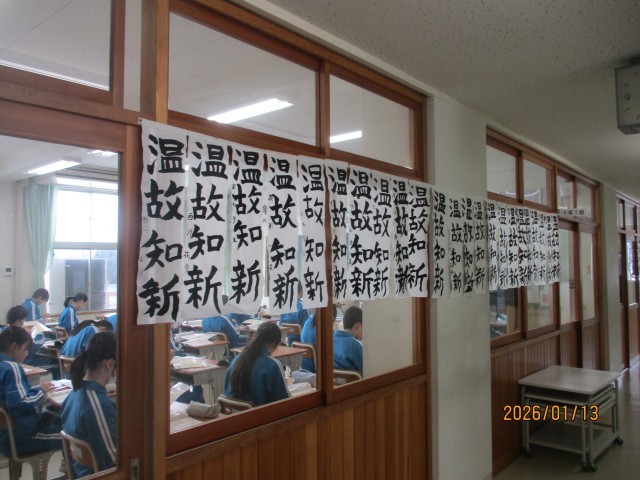 温故知新
温故知新
温故知新
温故知新
温故知新
温故知新
温故知新
温故知新
温故知新
温故知新
温故知新
温故知新
温故知新
温故知新
温故知新
温故知新
温故知新
温故知新
温故知新
2026/01/13